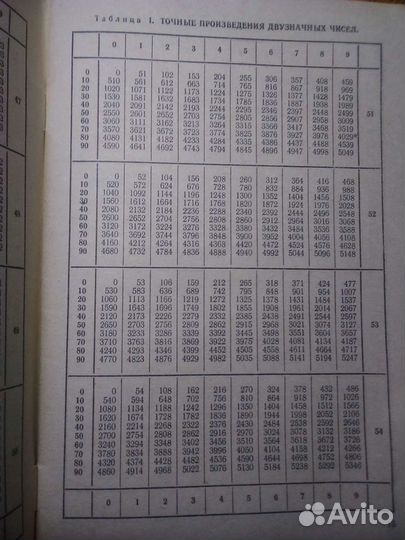 47
48
49
Таблица I. ТОЧНЫЕ ПРОИЗВЕДЕНИЯ ДВУЗНАЧНЫХ ЧИСЕЛ.
0 1 2 3 4 5 6 7 8 9
0 0 51 102 153 204 255 306 357 408 459
10 510 561 612 663 714 765 816 867 918 969
20 1020 1071 1122 1173 1224 1275 1326 1377 1428 1479
30 1530 1581 1632 1683 1734 1785 1836 1887 1938 1989
40 2040 2091 2142 2193 2244 2295 2346 2397 2448 2499
51
50 2550 2601 2652 2703 2754 2805 2856 2907 2958 3009
60 3060 3111 3162 3213 3264 3315 3366 3417 3468 3519
70 3570 3621 3672 3723 3774 3825 3876 3927 3978 4029
80 4080 4131 4182 4233 4284 4335 4386 4437 4488 4539
90 4590 4641 4692 4743 4794 4845 4896 4947 4998 5049
0 0 52 104 156 208 260 312 364 416 468
10 520 572 624 676 728 780 832 884 936 988
20 1040 1092 1144 1196 1248 1300 1352 1404 1456 1508
30 1560 1612 1664 1716 1768 1820 1872 1924 1976 2028
40 2080 2132 2184 2236 2288 2340 2392 2444 2496 2548
52
50 2600 2652 2704 2756 2808 2860 2912 2964 3016 3068
60 3120 3172 3224 3276 3328 3380 3432 3484 3536 3588
70 3640 3692 3744 3796 3848 3900 3952 4004 4056 4108
80 4160 4212 4264 4316 4368 4420 4472 4524 4576 4628
90 4680 4732 4784 4836 4888 4940 4992 5044 5096 5148
0 0 53 106 159 212 265 318 371 424 477
10 530 583 636 689 742 795 848 901 954 1007
20 1060 1113 1166 1219 1272 1325 1378 1431 1484 1537
30 1590 1643 1696 1749 1802 1855 1908 1961 2014 2067
40 2120 2173 2226 2279 2332 2385 2438 2491 2544 2597
50 2650 2703 2756 2809 2862 2915 2968 3021 3074 3127
53
60 3180 3233 3286 3339 3392 3445 3498 3551 3604 3657
70 3710 3763 3816 3869 3922 3975 4028 4081 4134 4187
80 4240 4293 4346 4399 4452 4505 4558 4611 4664 4717
90 4770 4823 4876 4929 4982 5035 5088 5141 5194 5247
0 0 54 108 162 216 270 324 378 432 486
10 540 594 648 702 756 810 864 918 972 1026
20 1080 1134 1188 1242 1296 1350 1404 1458 1512 1566
30 1620 1674 1728 1782 1836 1890 1944 1998 2052 2106
40 2160 2214 2268 2322 2376 2430 2484 2538 2592 2646
50 2700 2754 2808 2862 2916 2970 3024 3078 3132 3186
54
60 3240 3294 3348 3402 3456 3510 3564 3618 3672 3726
70 3780 3834 3888 3942 3996 4050 4104 4158 4212 4266
80 4320 4374 4428 4482 4536 4590 4644 4698 4752 4806
90 4860 4914 4968 5022 5076 5130 5184 5238 5292 5346
0 1 2 3 4 5 6 7 8 9
Avito